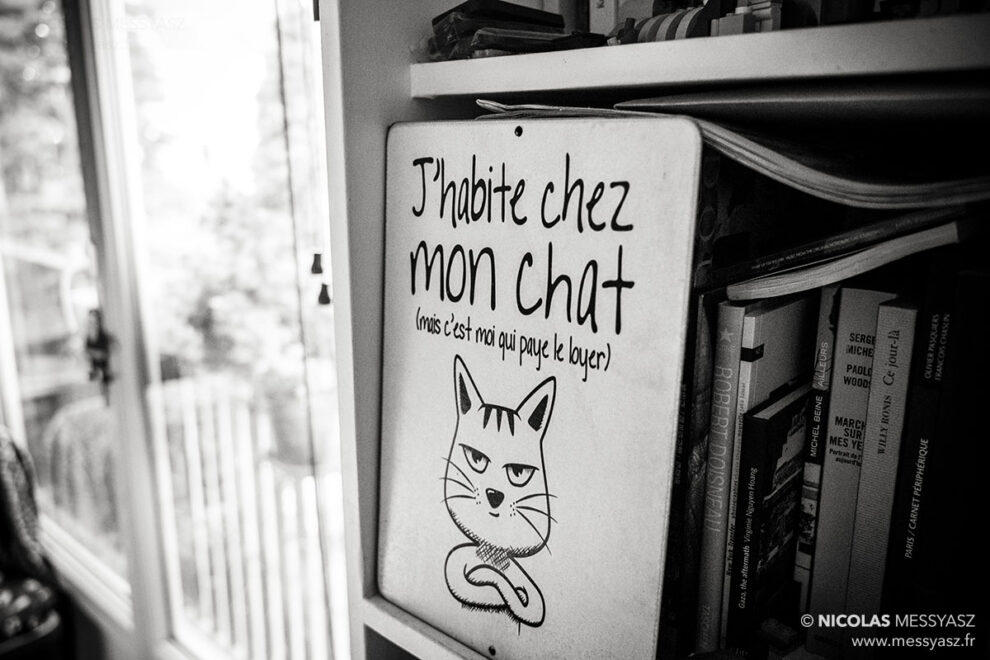 J'habite chez
mon chat
(mais c'est moi qui paye le loyer)
ROBERT DOISNEAU
Gaza, the aftermath Virginie Nguyen Hoang
MICHEL BEINE AILLEURS
SERGE
MICHEL
PAOLO
WOODS
MARCHE
SUR
MES YE
Portrait de l'
aujourd'hui
WILLY RONIS Ce jour-là
PARIS / CARNET PÉRIPHÉRIQUE
OLIVIER PASQUIERS
FRANÇOIS CHASLIN
© NICOLAS MESSYASZ
www.messyasz.fr
MESSYASZ